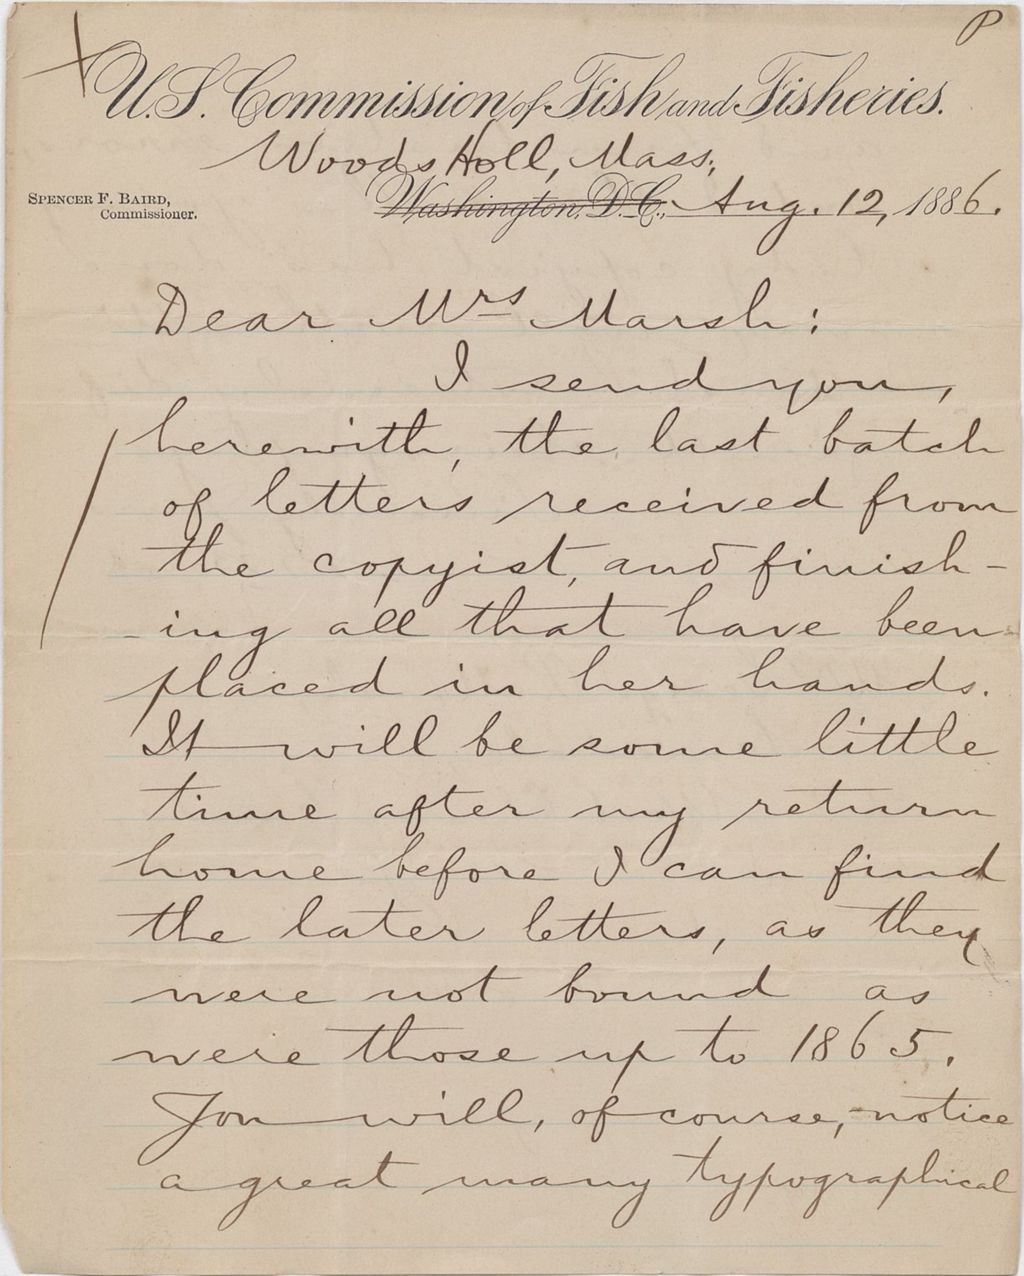 P
U.S. Commission of Fish and Fisheries.
Woods Holl, Mass,
SPENCER F. BAIRD,
Commissioner.
Washington, D.C., Aug. 12, 1886.
Dear Mrs Marsh:
I send you,
herewith, the last batch
of letters received from
the copyist, and finish-
-ing all that have been
placed in her hands.
It will be some little
time after my return
home before I can find
the later letters, as they
were not bound as
were those up to 1865.
You will, of course, notice
a great many typographical